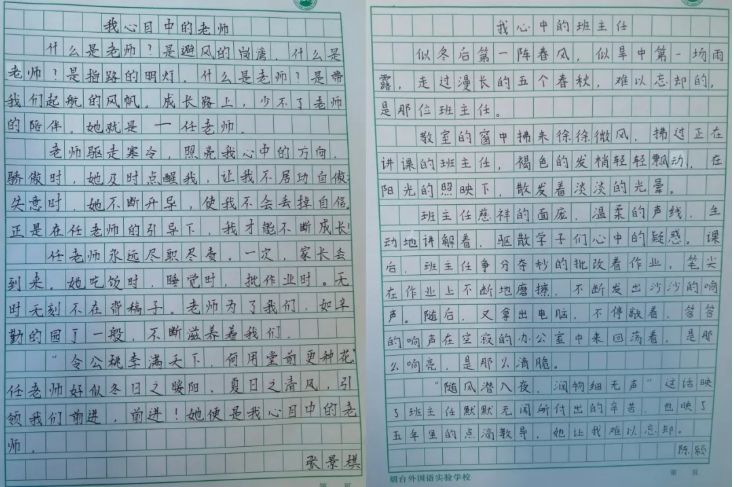 我心目中的老师
什么是老师？是避风的岗湾，什么是
老师？是指路的明灯，什么是老师？是带
我们起航的风帆。成长路上，少不了老师
的陪伴。她就是一任老师。
老师驱走寒冷，照亮我心中的方向，
骄傲时，她及时点醒我，让我不居功自傲
失意时，她不断开导，使我不会丢掉自信
正是在任老师的引导下，我才能不断成长
任老师永远尽职尽责，一次，家长会
到来，她吃饭时，睡觉时，批作业时。无
时无刻不在背稿子。老师为了我们，如辛
勤的园丁一般，不断滋养着我们。
“令公桃李满天下，何用堂前更种花
任老师好似冬日之暖阳，夏日之清风，引
领我们前进，前进！她便是我心目中的老
师。
张景棋
我心中的班主任
似冬后第一阵春风，似旱中第一场雨
露，走过漫长的五个春秋，难以忘却的，
是那位班主任。
教室的窗中拂来徐徐微风，拂过正在
讲课的班主任，褐色的发梢轻轻飘动，在
阳光的照映下，散发着淡淡的光晕。
班主任慈祥的面庞，温柔的声线，生
动地讲解着，驱散学子们心中的疑惑。课
后，班主任争分夺秒的批改着作业，笔尖
在作业上不断地磨擦，不断发出沙沙的响
声。随后，又拿出电脑，不停敲着，答答
的响声在空寂的办公室中来回荡着，是那
么响亮，是那么清脆。
“随风潜入夜，润物细无声”这话映
了班主任默默无闻所付出的辛苦，也映了
五年里的点滴教导，她让我难以忘却。
陈颖
烟台外国语实验学校